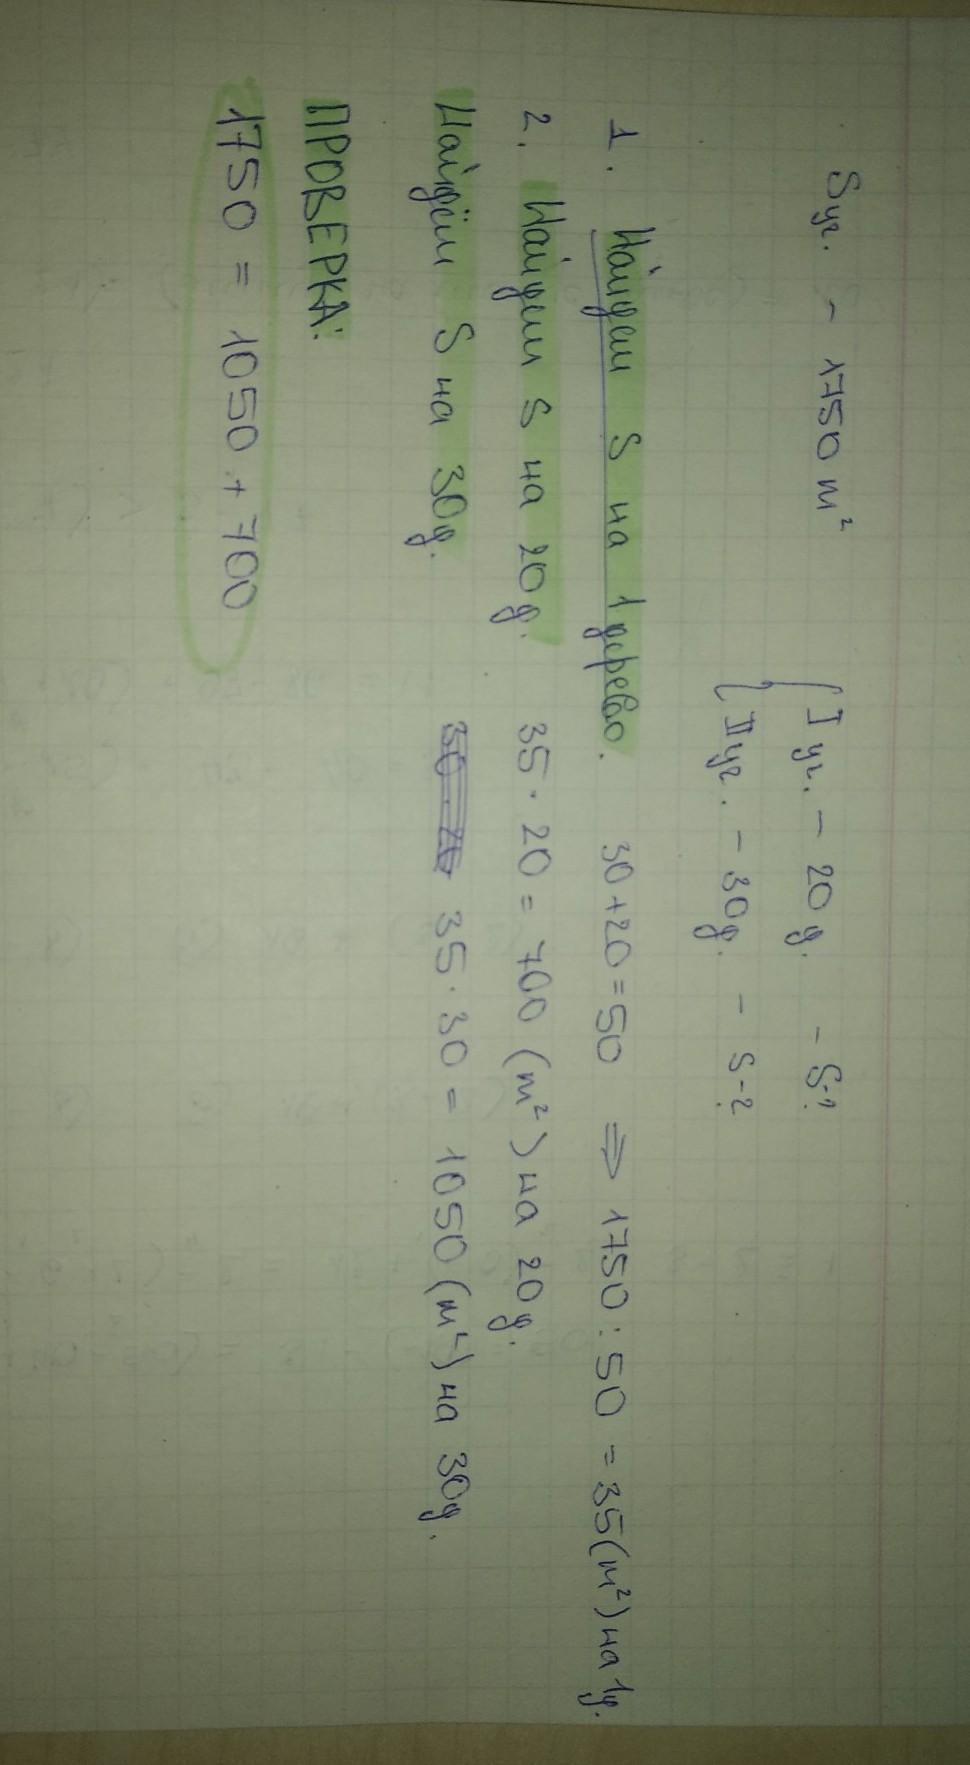 Sуч. - 1750 m²
I уч. - 20 g. - S-?
II уч. - 30g. - S-?
1. Найдем S на 1 дерево. 30+20=50 ⇒ 1750 : 50 = 35(m²) на 1g.
2. Найдем S на 20g. 35 · 20 = 700 (m²) на 20g.
Найдём S на 30g. 35 · 30 = 1050 (m²) на 30g.
ПРОВЕРКА:
1750 = 1050 + 700